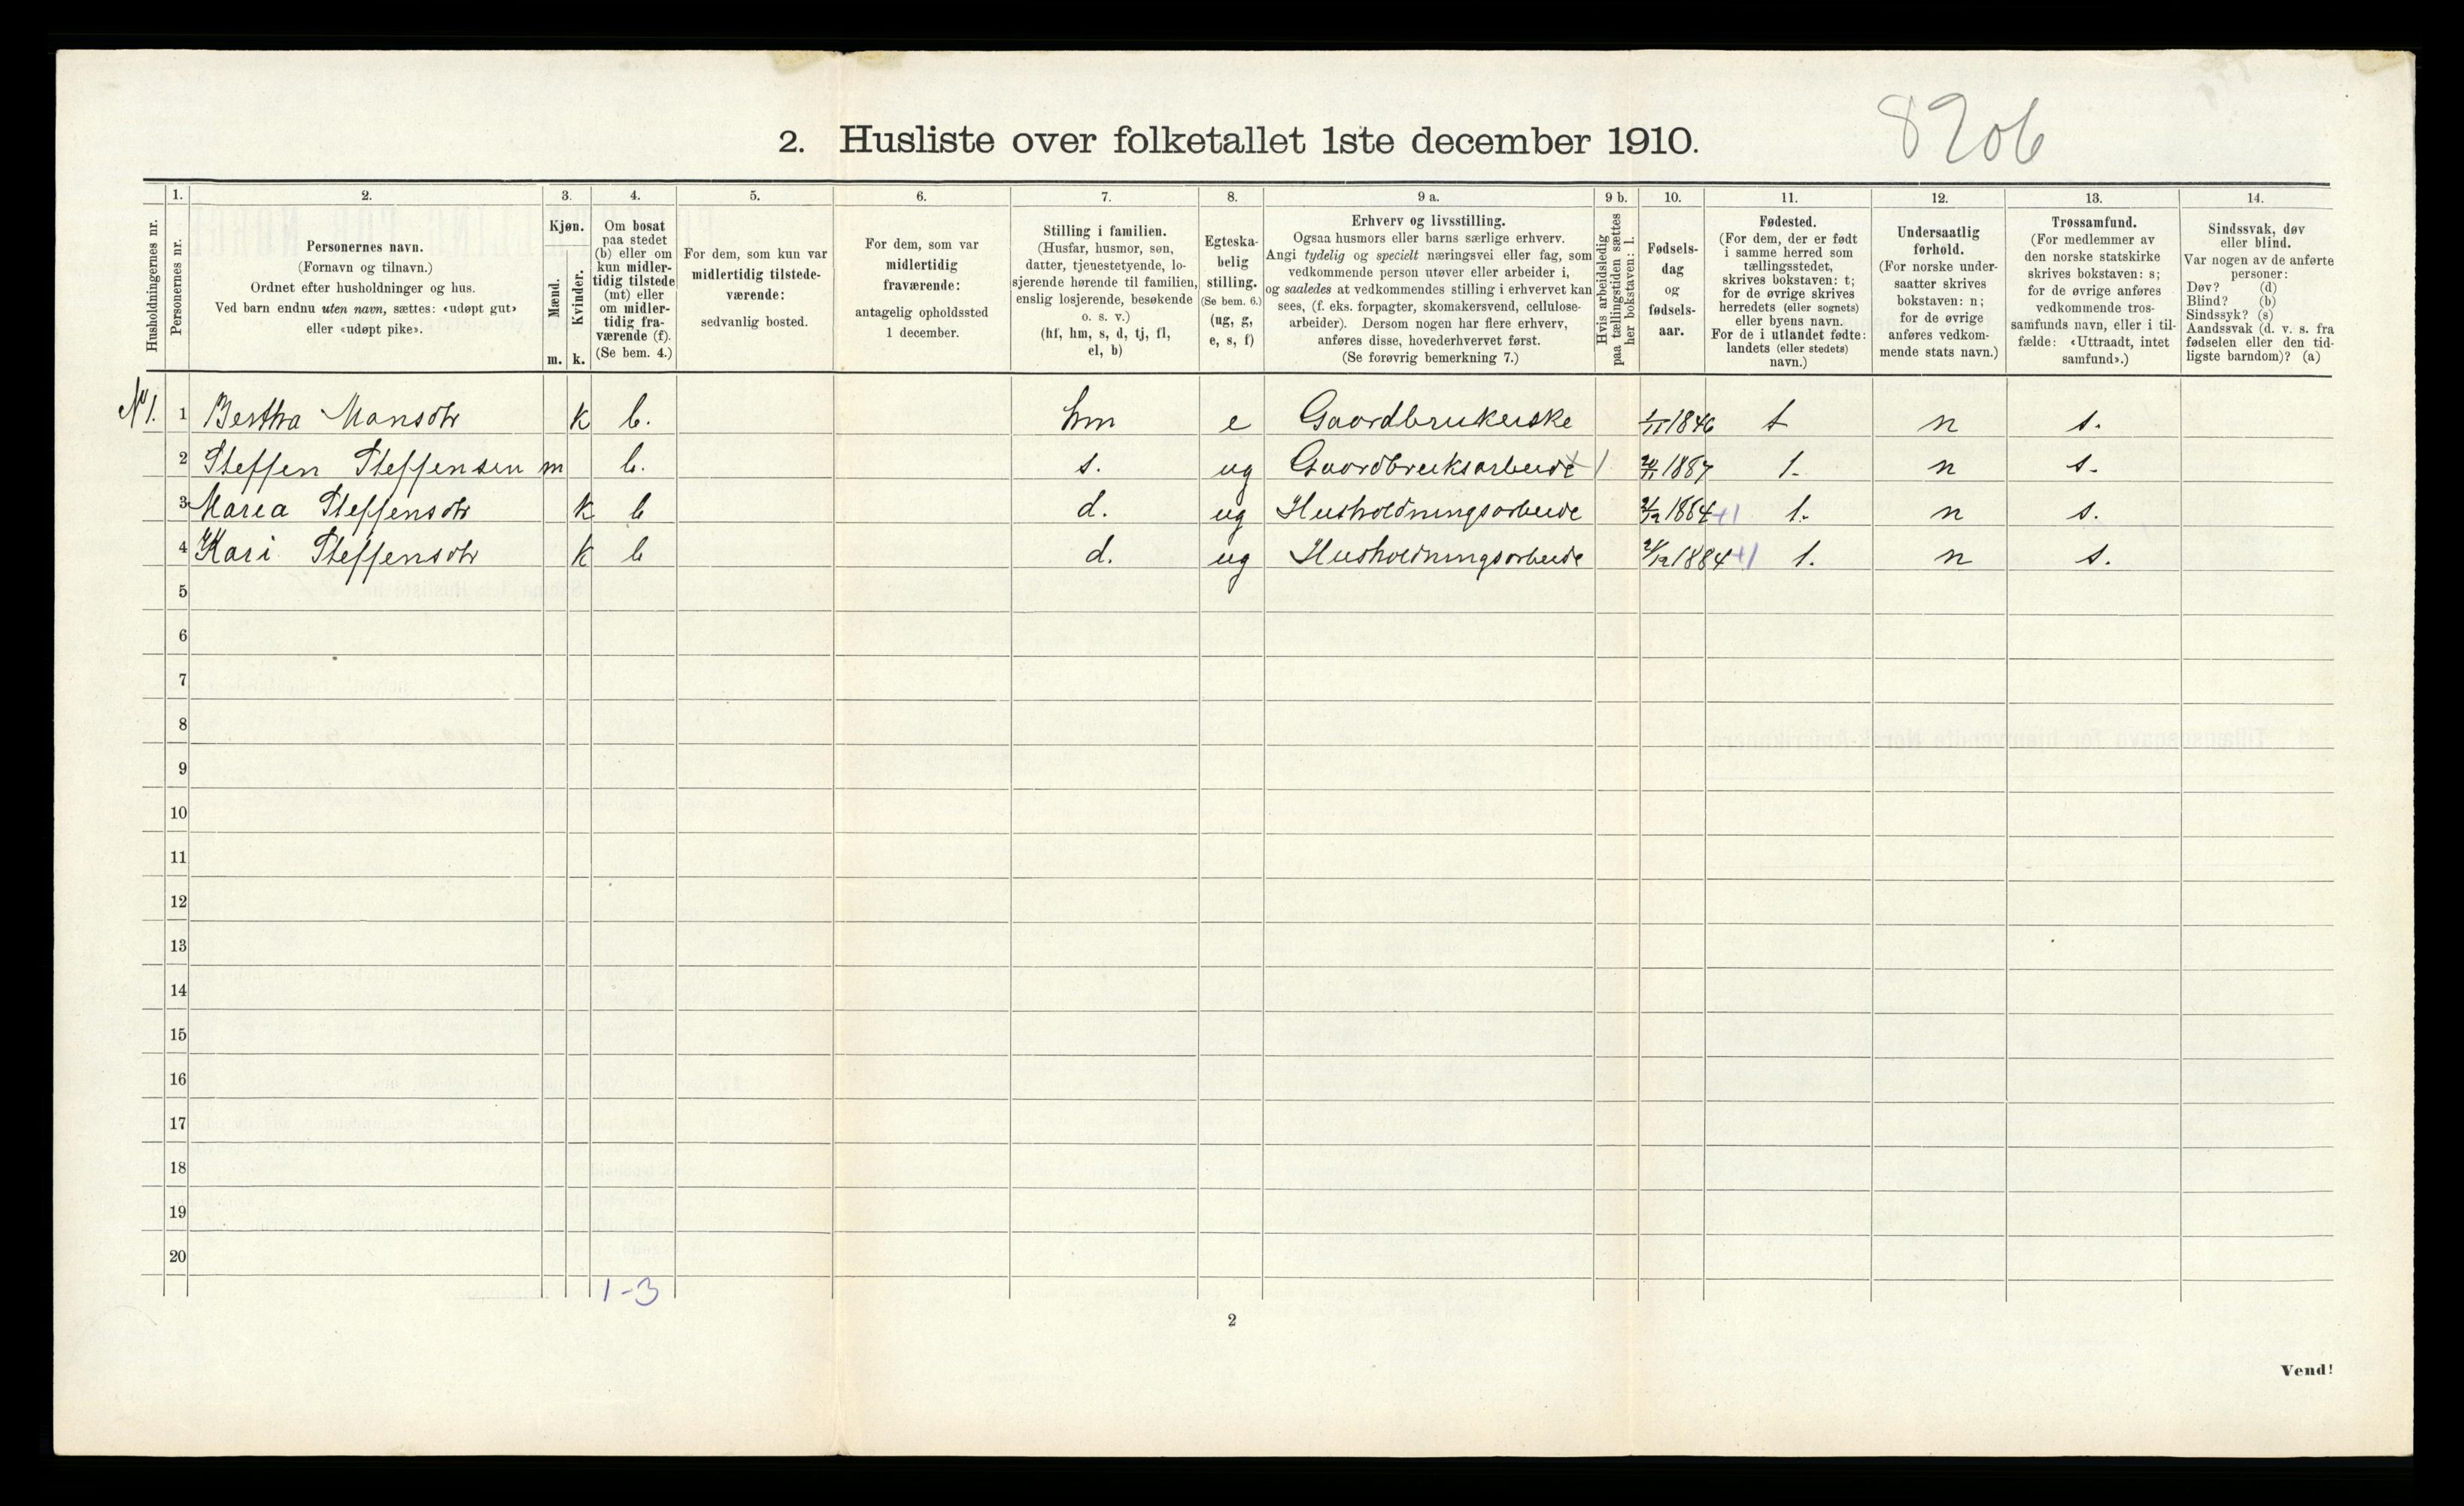 8206
2. Husliste over folketallet 1ste december 1910.
Husholdningernes nr.
1.
Personernes nr.
2.
Personernes navn.
(Fornavn og tilnavn.)
Ordnet efter husholdninger og hus.
Ved barn endnu uten navn, sættes: «udøpt gut»
eller «udøpt pike».
3.
Kjøn.
Mænd.
Kvinder.
m. k.
4.
Om bosat
paa stedet
(b) eller om
kun midler-
tidig tilstede
(mt) eller
om midler-
tidig fra-
værende (f).
(Se bem. 4.)
5.
For dem, som kun var
midlertidig tilstede-
værende:
sedvanlig bosted.
6.
For dem, som var
midlertidig
fraværende:
antagelig opholdssted
1 december.
7.
Stilling i familien.
(Husfar, husmor, søn,
datter, tjenestetyende, lo-
sjerende hørende til familien,
enslig losjerende, besøkende
o. s. v.)
(hf, hm, s, d, tj, fl,
el, b)
8.
Egteska-
belig
stilling.
(Se bem. 6.)
(ug, g,
e, s, f)
9 a.
Erhverv og livsstilling.
Ogsaa husmors eller barns særlige erhverv.
Angi tydelig og specielt næringsvei eller fag, som
vedkommende person utøver eller arbeider i,
og saaledes at vedkommendes stilling i erhvervet kan
sees, (f. eks. forpagter, skomakersvend, cellulose-
arbeider). Dersom nogen har flere erhverv,
anføres disse, hovederhvervet først.
(Se forøvrig bemerkning 7.)
9 b.
Hvis arbeidsledig
paa tællingstiden sættes
her bokstaven: l.
10.
Fødsels-
dag
og
fødsels-
aar.
11.
Fødested.
(For dem, der er født
i samme herred som
tællingsstedet,
skrives bokstaven: t;
for de øvrige skrives
herredets (eller sognets)
eller byens navn.
For de i utlandet fødte:
landets (eller stedets)
navn.)
12.
Undersaatlig
forhold.
(For norske under-
saatter skrives
bokstaven: n;
for de øvrige
anføres vedkom-
mende stats navn.)
13.
Trossamfund.
(For medlemmer av
den norske statskirke
skrives bokstaven: s;
for de øvrige anføres
vedkommende tros-
samfunds navn, eller i til-
fælde: «Uttraadt, intet
samfund».)
14.
Sindssvak, døv
eller blind.
Var nogen av de anførte
personer:
Døv? (d)
Blind? (b)
Sindssyk? (s)
Aandssvak (d. v. s. fra
fødselen eller den tid-
ligste barndom)? (a)
No 1. 1 Bertha Mansdtr k b. hm e Gaardbrukerske 1846 t n s.
2 Steffen Steffensen m b. s. ug Gaardbruksarbeide 1887 t. n s.
3 Maria Steffensdtr k b d. ug Husholdningsarbeide 1864 +1 t. n s.
4 Kari Steffensdtr k b d. ug Husholdningsarbeide 1884 +1 t. n s.
5
6
7
8
9
10
11
12
13
14
15
16
17
18
19
20
1-3
2
Vend!